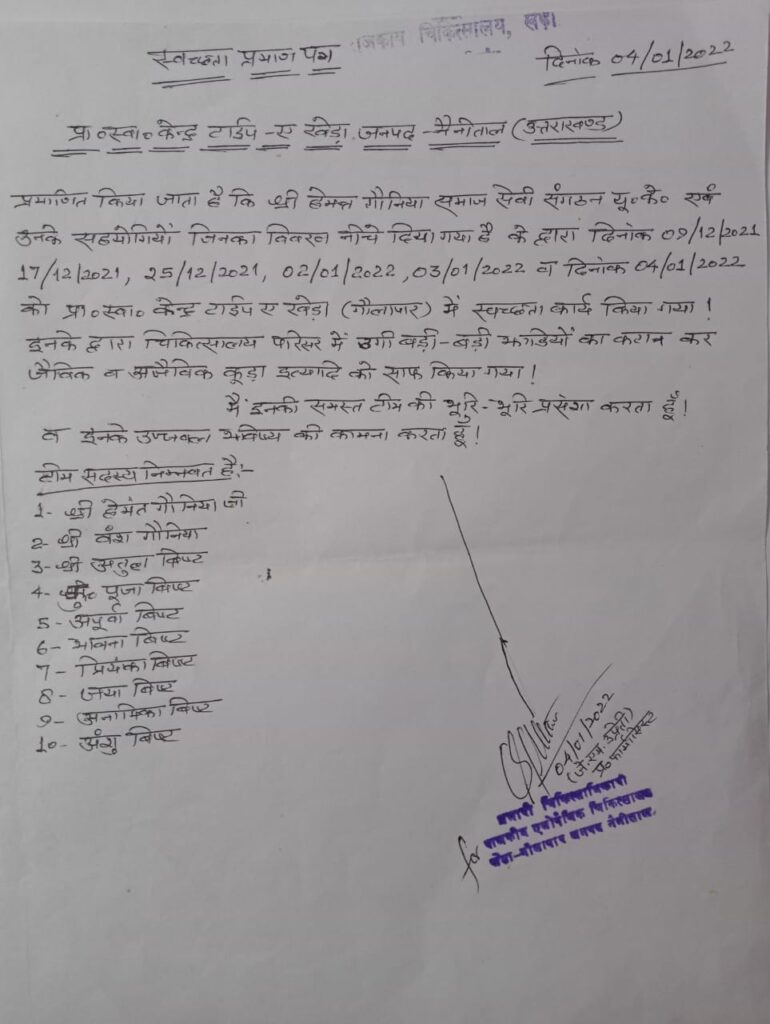 राजकीय चिकित्सालय, खेड़ा
स्वच्छता प्रमाण पत्र
दिनांक 04/01/2022
प्रा०स्वा० केन्द्र टाईप-ए खेड़ा जनपद-नैनीताल (उत्तराखण्ड)
प्रमाणित किया जाता है कि श्री हेमन्त गौनिया समाज सेवी संगठन यू०के० एवं
उनके सहयोगियों जिनका विवरण नीचे दिया गया है के द्वारा दिनांक 09/12/2021
17/12/2021, 25/12/2021, 02/01/2022, 03/01/2022 व दिनांक 04/01/2022
को प्रा०स्वा० केन्द्र टाईप ए खेड़ा (गौलापार) में स्वच्छता कार्य किया गया !
इनके द्वारा चिकित्सालय परिसर में उगी बड़ी-बड़ी झाडियों का कटान कर
जैविक व अजैविक कूड़ा इत्यादि को साफ किया गया !
मैं इनकी समस्त टीम की भूरि-भूरि प्रसंशा करता हूँ !
व इनके उज्जवल भविष्य की कामना करता हूँ !
टीम सदस्य निम्नवत है:-
1- श्री हेमंत गौनिया जी
2- श्री वंश गौनिया
3- श्री अतुल बिष्ट
4- कु० पूजा बिष्ट
5- अपूर्वा बिष्ट
6- भावना बिष्ट
7- प्रियंका बिष्ट
8- जया बिष्ट
9- अनामिका बिष्ट
10- अंशु बिष्ट
04/01/2022
(जे.एम. उप्रेती)
प्र० फार्मासिस्ट
प्रभारी चिकित्साधिकारी
for राजकीय एलोपैथिक चिकित्सालय
खेड़ा-गौलापार जनपद नैनीताल.